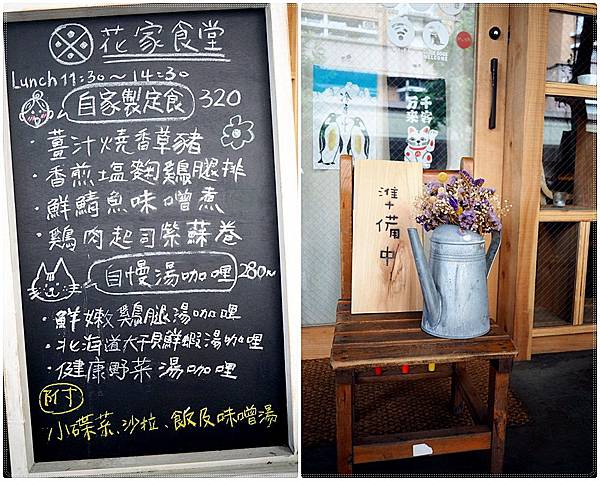 花家食堂
Lunch 11:30~14:30
自家製定食 320
・薑汁燒香草豬
・香煎塩麴鷄腿排
・鮮鯖魚味噌煮
・鷄肉起司紫蘇卷
自慢湯咖哩 280~
・鮮嫩鷄腿湯咖哩
・北海道大干貝鮮蝦湯咖哩
・健康野菜湯咖哩
附
小碟菜、沙拉、飯及味噌湯
千客
万来
準備中